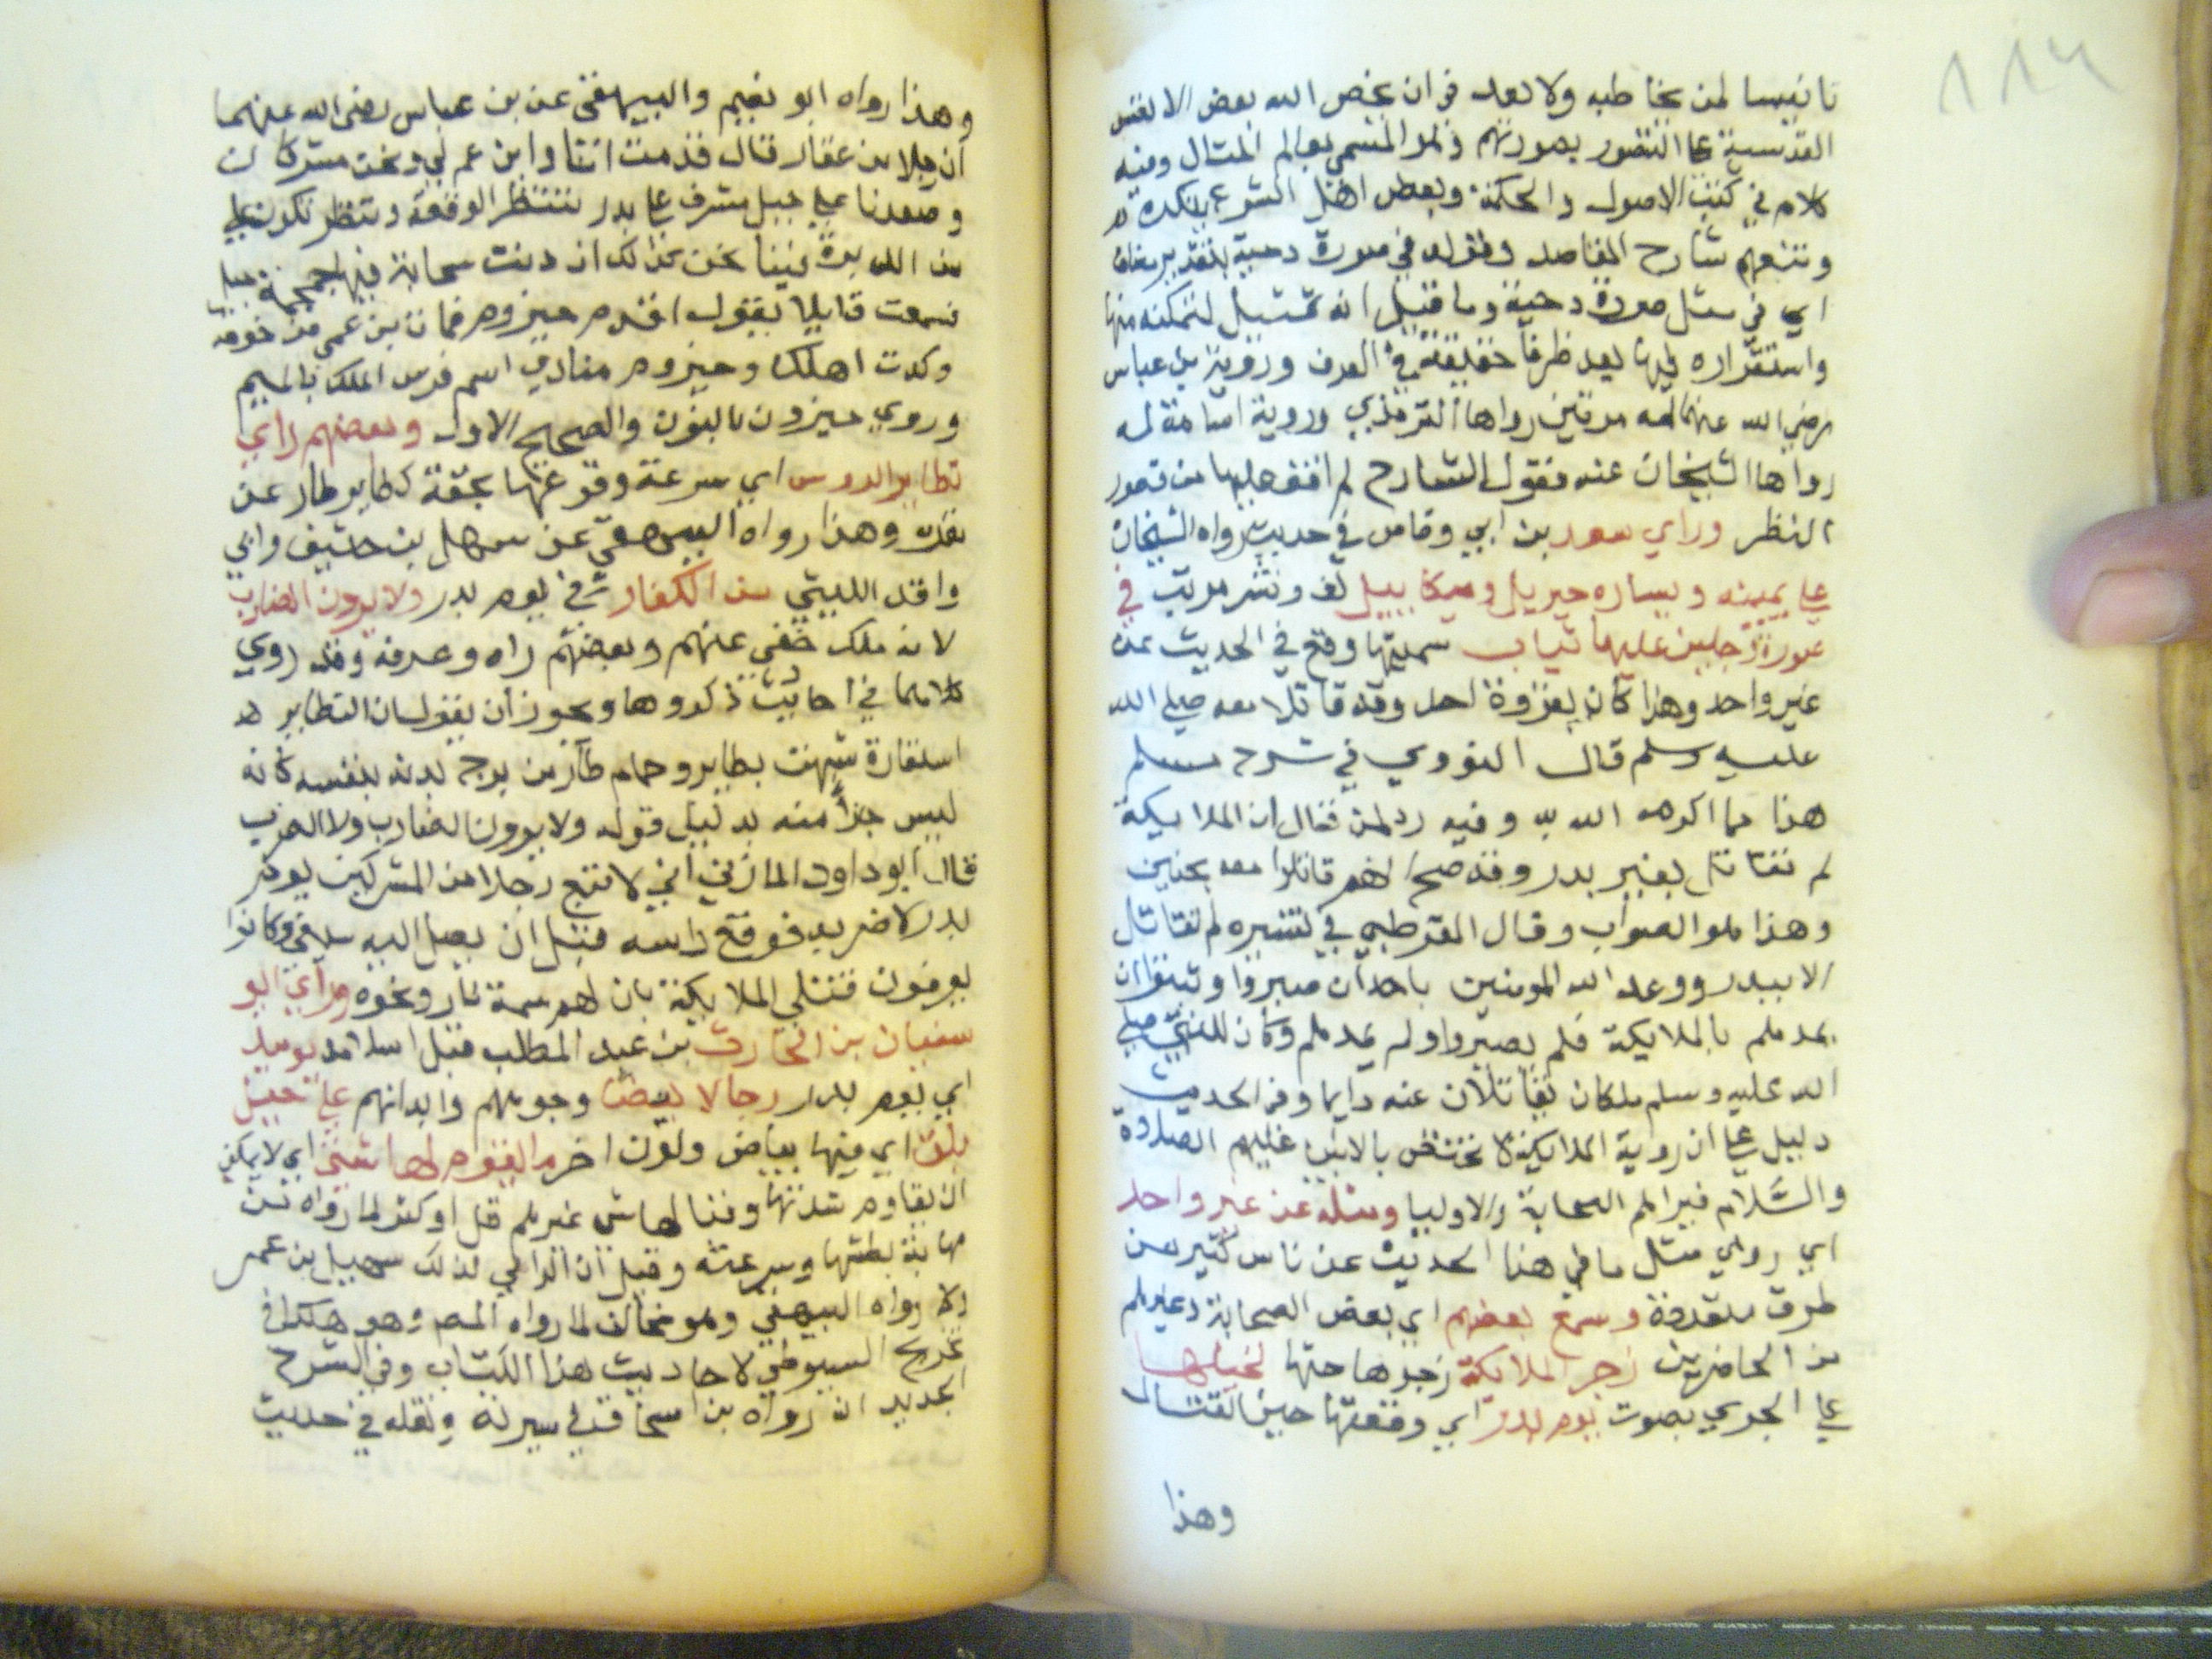 ١١٤
تانيسا لمن يخاطبه ولا بعد في ان يخص الله بعض الانفس
القدسية علي التصور بصورتهم وهو المسمي بعالم المثال وفيه
كلام في كتب الاصول والحكمة وبعض اهل الشرع ينكره
وتتبعهم شارح المقاصد وقوله في صورة دحية بتقدير مضاف
اي في مثل صورة دحية وما قيل انه تمثيل لتمكنه منها
واستقراره فيها يعد ظرفا حقيقة في العرف وروية بن عباس
رضي الله عنهما له مرتين رواها الترمذي وروية اسامة له
رواها الشيخان عنه فقول الشارح لم اقف عليها من قصور
النظر وراي سعد بن ابي وقاص في حديث رواه الشيخان
علي يمينه ويساره جبريل وميكاييل لف ونشر مرتب في
صورة رجلين عليهما ثياب سميتها وقع في الحديث عن
غير واحد وهذا كان بغزوة احد وقد قاتلا معه صلي الله
عليه وسلم قال النووي في شرح مسلم
هذا مما اكرمه الله به وفيه رد لمن قال ان الملايكة
لم تقاتل بغير بدر وقد صح انهم قاتلوا معه بحنين
وهذا هو الصواب وقال القرطبي في تفسيره لم تقاتل
الا ببدر ووعد الله المومنين باحد ان صبروا وتيقوا ان
يمدهم بالملايكة فلم يصبروا ولم يمدهم وكان للنبي صلي
الله عليه وسلم ملكان يقاتلان عنه دايما وفي الحديث
دليل علي ان روية الملايكة لا تختص بالانبيا عليهم الصلاة
والسلام فيراهم الصحابة والاوليا ومثله عن غير واحد
اي روي مثل ما في هذا الحديث عن ناس كثير من
طرق متعددة وسمع بعضهم اي بعض الصحابة وغيرهم
من الحاضرين زجر الملايكة زجرها حثها لخيلها
علي الجري بصوت يوم بدر اي وقعتها حين القتال
وهذا
وهذا رواه ابو نعيم والبيهقي عن بن عباس رضي الله عنهما
ان رجلا من غفار قال قدمت انا وابن عم لي ونحن مشركان
وصعدنا علي جبل مشرف علي بدر ننتظر الوقعة وننتظر تكون علي
من الدبرة فبينا نحن كذلك اذ دنت سحابة فيها حمحمة خيل
فسمعت قايلا يقول اقدم حيزوم فمات بن عمي من خوفه
وكدت اهلك وحيزوم منادي اسم فرس الملك بالميم
وروي حيزون بالنون والصحيح الاول وبعضهم راي
تطاير الروس اي سرعة وقوعها بخفة كطاير طار عن
مقره وهذا رواه البيهقي عن سهل بن حنيف وابي
واقد الليثي من الكفار في يوم بدر ولا يرون الضارب
لانه ملك خفي عنهم وبعضهم راه وعرفه وقد روي
كلاهما في احاديث ذكروها ويجوز ان يقول ان التطاير
استعارة شبهت بطاير وحمام طار من برج بدنه بنفسه كانه
ليس جزا منه بدليل قوله ولا يرون الضارب ولا الضرب
قال ابو داود المازني اني لاتبع رجلا من المشركين يوم
بدر لاضربه فوقع راسه قبل ان يصل اليه سيفي وكانوا
يعرفون قتلي الملايكة بان لهم سمة نار ونحوه وراي ابو
سفيان بن الحارث بن عبد المطلب قبل اسلامه يوميذ
اي يوم بدر رجالا بيضا وجوههم وابدانهم علي خيل
بلق اي فيها بياض ولون اخر ما يقوم لها شي اي لا يمكن
ان يقاوم شدتها وفنا لها شي غيرهم قل او كثر لما رواه من
مهابة بطشها وسرعته وقيل ان الرايي لذلك سهيل بن عمر
ولا رواه البيهقي وهو مخالف لما رواه المص وهو هكذا في
تخريج السيوطي لاحاديث هذا الكتاب وفي الشرح
الجديد ان رواه بن اسحاق في سيرته ونقله في حديث